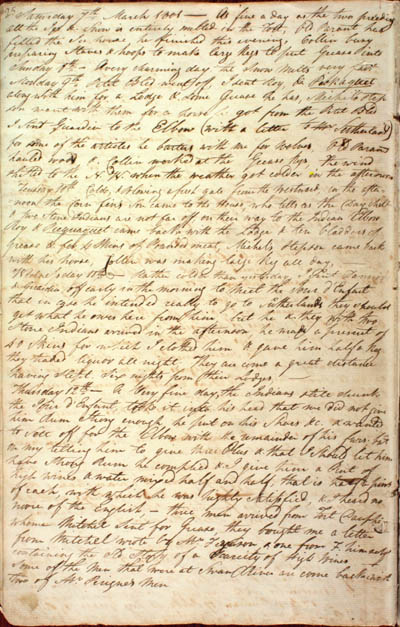 Saturday 7th March 1801 — As fine a day as the two preceding
all the Ice & snow is entirely melted in the Fort, Parant has
filled the Ice house he finished this evening, Collin busy
preparing Staves & hoops to make large Kegs to put Grease into
Sunday 8th — A very charming day, the Snow melts very fast
Monday 9th
along with him for a Lodge & some Grease he has,
son went with them for a horse I got from the Petit Bled
I sent Giardin to the Elbow (with a letter to Mr Sutherland)
for some of the articles he barters with me for Wolves.
hauled wood & Collin worked at the Grease Kegs. the wind
shifted to the N.W. when the weather got colder in the afternoon
Tuesday 10th Cold, & blowing a fresh gale from the westward, in the after-
noon the Son came to the House who tells us the
& two Stone Indians are not far off on their way to the Indian Elbow
Roy & came back with the Lodge & ten Bladders of
Grease & few Skins of Pounded meat, came back
with his horse, Collin was making large Keg all day,
Wednesday 11th — rather colder than yesterday, I sent
& Giardin off early in the morning to meet the d'Enfant
that in case he intended really to go to Sutherlands they should
get what he owes here from him, but he & they with two
Stone Indians arrived in the afternoon he made a present of
40 Skins for which I clothed him & gave him half a keg
they traded liquor all night. They are come a great distance
having slept six nights from their Lodges —
Thursday 12th A very fine day, the Indians still drunk
the d'Enfant, took it into his head that we did not give
him Rum strong enough, he put on his shoes &c. & wanted
to sett off for the Elbow with the remainder of his furs, but
on my telling him to give & that I should let him
have strong Rum he complied & I give him a Pint of
high wines & water mixed half and half, that is half a pint
of each, with which he was highly satisfied, & I heard no
more of the English — three men arrived from Fort
whome Mitchel sent for Grease, they bought me a letter
from Mitchel wrote by Mr & one from F. himself
containing the Old Story of a Scarcity of High Wines
Some of the men that were at Swan River are come back with
two of Mr Perigne's Men